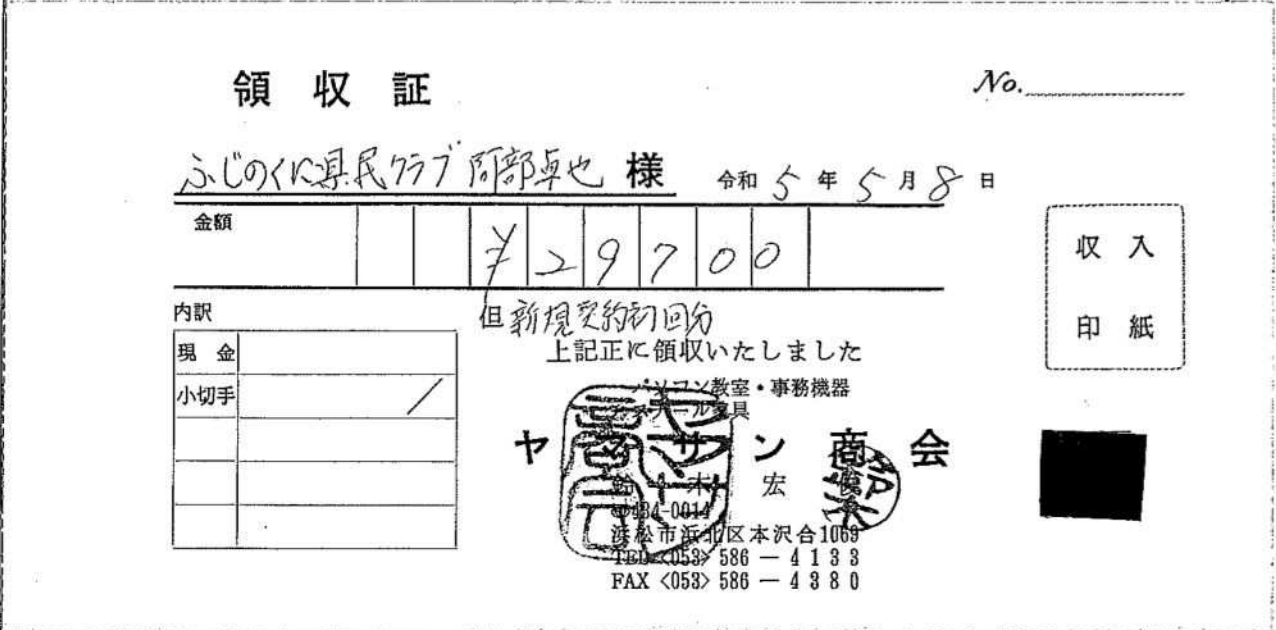 領収証
No.
ふじのくに県民クラブ 阿部卓也 様
令和 5 年 5 月 8 日
金額 ¥29700
収入
印紙
内訳
但 新規契約初回分
上記正に領収いたしました
現金
小切手
パソコン教室・事務機器
スチール家具
ヤマサン商会
鈴木 宏
〒434-0014
浜松市浜北区本沢合1069
TEL <053> 586 — 4133
FAX <053> 586 — 4380